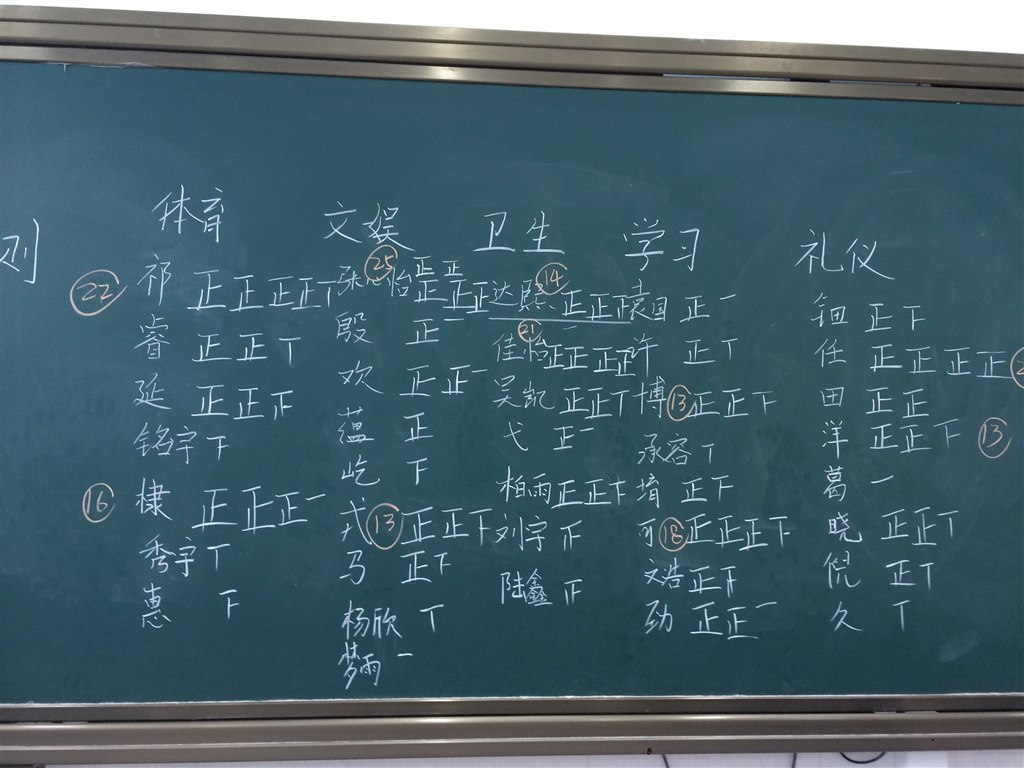 则
体育
22 祁 正正正正丅
睿 正正丅
延 正正
铭宇 下
16 棣 正正正一
秀宇 丅
惠 下
文娱
25 怡 正正正正正
殷 正一
欢 正正一
蕴 正
屹 下
弋 13 正正下
马 正下
杨欣 丅
梦雨 一
卫生
达熙 14 正正
21 佳怡 正正正正一
吴凯 正正丅
弋 正一
柏雨 正正下
刘宇
陆鑫
学习
袁国 正一
许 正丅
博 13 正正下
承容 丅
堉 正下
可 18 正正正下
文浩 正
劲 正正一
礼仪
钿 正下
任 正正正正
田 正正
洋 正正下 13
葛 一
晓 正正丅
倪 正丅
久 丅